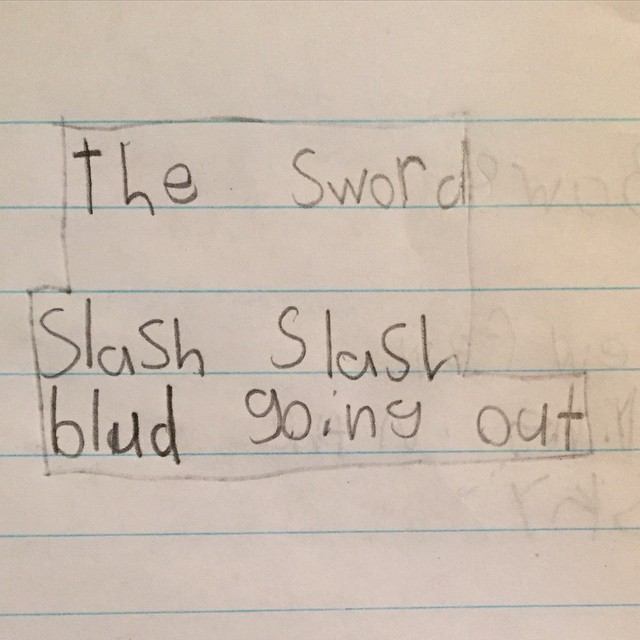 the Sword
Slash Slash
blud going out